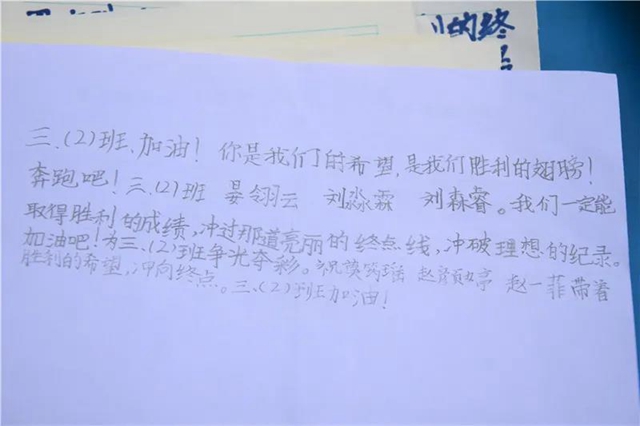 的终
点
三、(2)班、加油！你是我们的希望,是我们胜利的翅膀！
奔跑吧！三、(2)班 晏翎云 刘淼霖 刘森睿。我们一定能
取得胜利的成绩,冲过那道亮丽的终点线,冲破理想的纪录。
加油吧！为三、(2)班争光夺彩。祝 赵 亭 赵一菲带着
胜利的希望,冲向终点。三、(2)班加油！